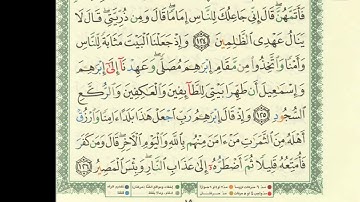 فَأَتَمَّهُنَّ ۖ قَالَ إِنِّي جَاعِلُكَ لِلنَّاسِ إِمَامًا ۖ قَالَ وَمِن ذُرِّيَّتِي ۖ قَالَ لَا
يَنَالُ عَهْدِي الظَّٰلِمِينَ ١٢٤ وَإِذْ جَعَلْنَا الْبَيْتَ مَثَابَةً لِّلنَّاسِ
وَأَمْنًا وَاتَّخِذُوا مِن مَّقَامِ إِبْرَٰهِۦمَ مُصَلًّى ۖ وَعَهِدْنَآ إِلَىٰٓ إِبْرَٰهِۦمَ
وَإِسْمَٰعِيلَ أَن طَهِّرَا بَيْتِيَ لِلطَّآئِفِينَ وَالْعَٰكِفِينَ وَالرُّكَّعِ
السُّجُودِ ١٢٥ وَإِذْ قَالَ إِبْرَٰهِۦمُ رَبِّ اجْعَلْ هَٰذَا بَلَدًا ءَامِنًا وَارْزُقْ
أَهْلَهُۥ مِنَ الثَّمَرَٰتِ مَنْ ءَامَنَ مِنْهُم بِاللَّهِ وَالْيَوْمِ الْءَاخِرِ ۖ قَالَ وَمَن كَفَرَ
فَأُمَتِّعُهُۥ قَلِيلًا ثُمَّ أَضْطَرُّهُۥٓ إِلَىٰ عَذَابِ النَّارِ ۖ وَبِئْسَ الْمَصِيرُ ١٢٦